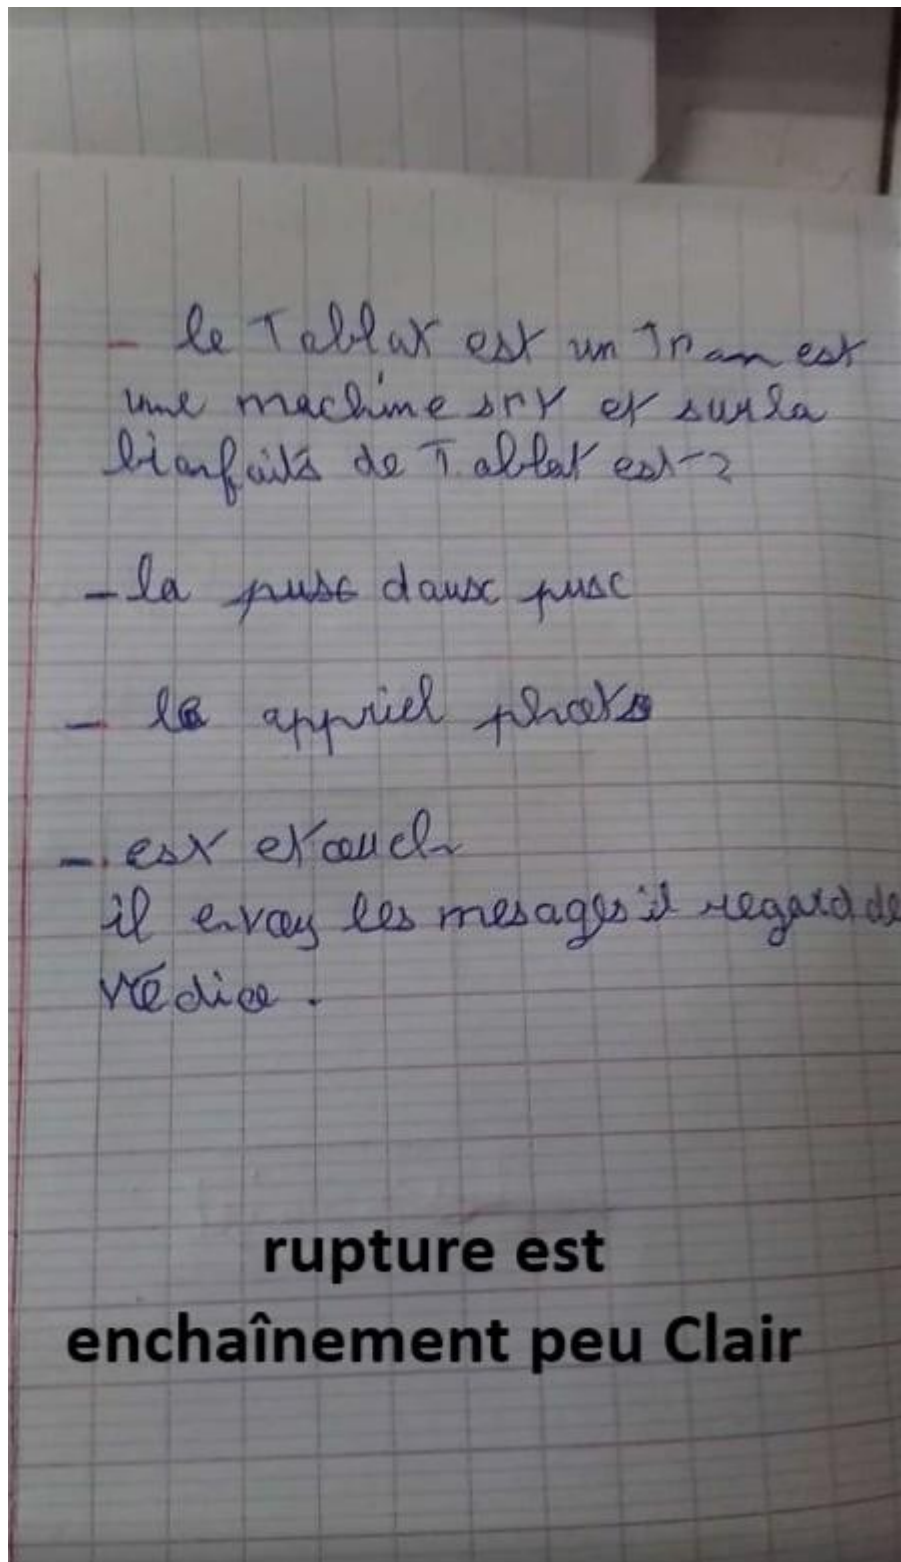 - le Tablat est un Tr an est
une machine srr et sur la
bienfaits de Tablat est-2
- la puse daux puse
- le appriel phots
- est et
il envoy les mesages il regard de
védioe.
rupture est
enchaînement peu Clair